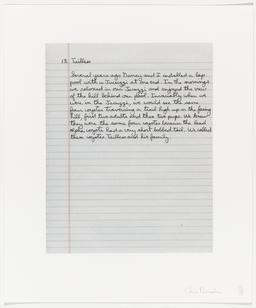 13. Tailless
Several years ago Nancy and I installed a lap
pool with a Jacuzzi at one end. In the mornings
we relaxed in our Jacuzzi and enjoyed the view
of the hill behind our pool. Invariably when we
were in the Jacuzzi, we would see the same
four coyotes traversing a trail high up on the facing
hill, first two adults and then two pups. We knew
they were the same four coyotes because the lead
alpha coyote had a very short bobbed tail. We called
them coyotes Tailless and his family.